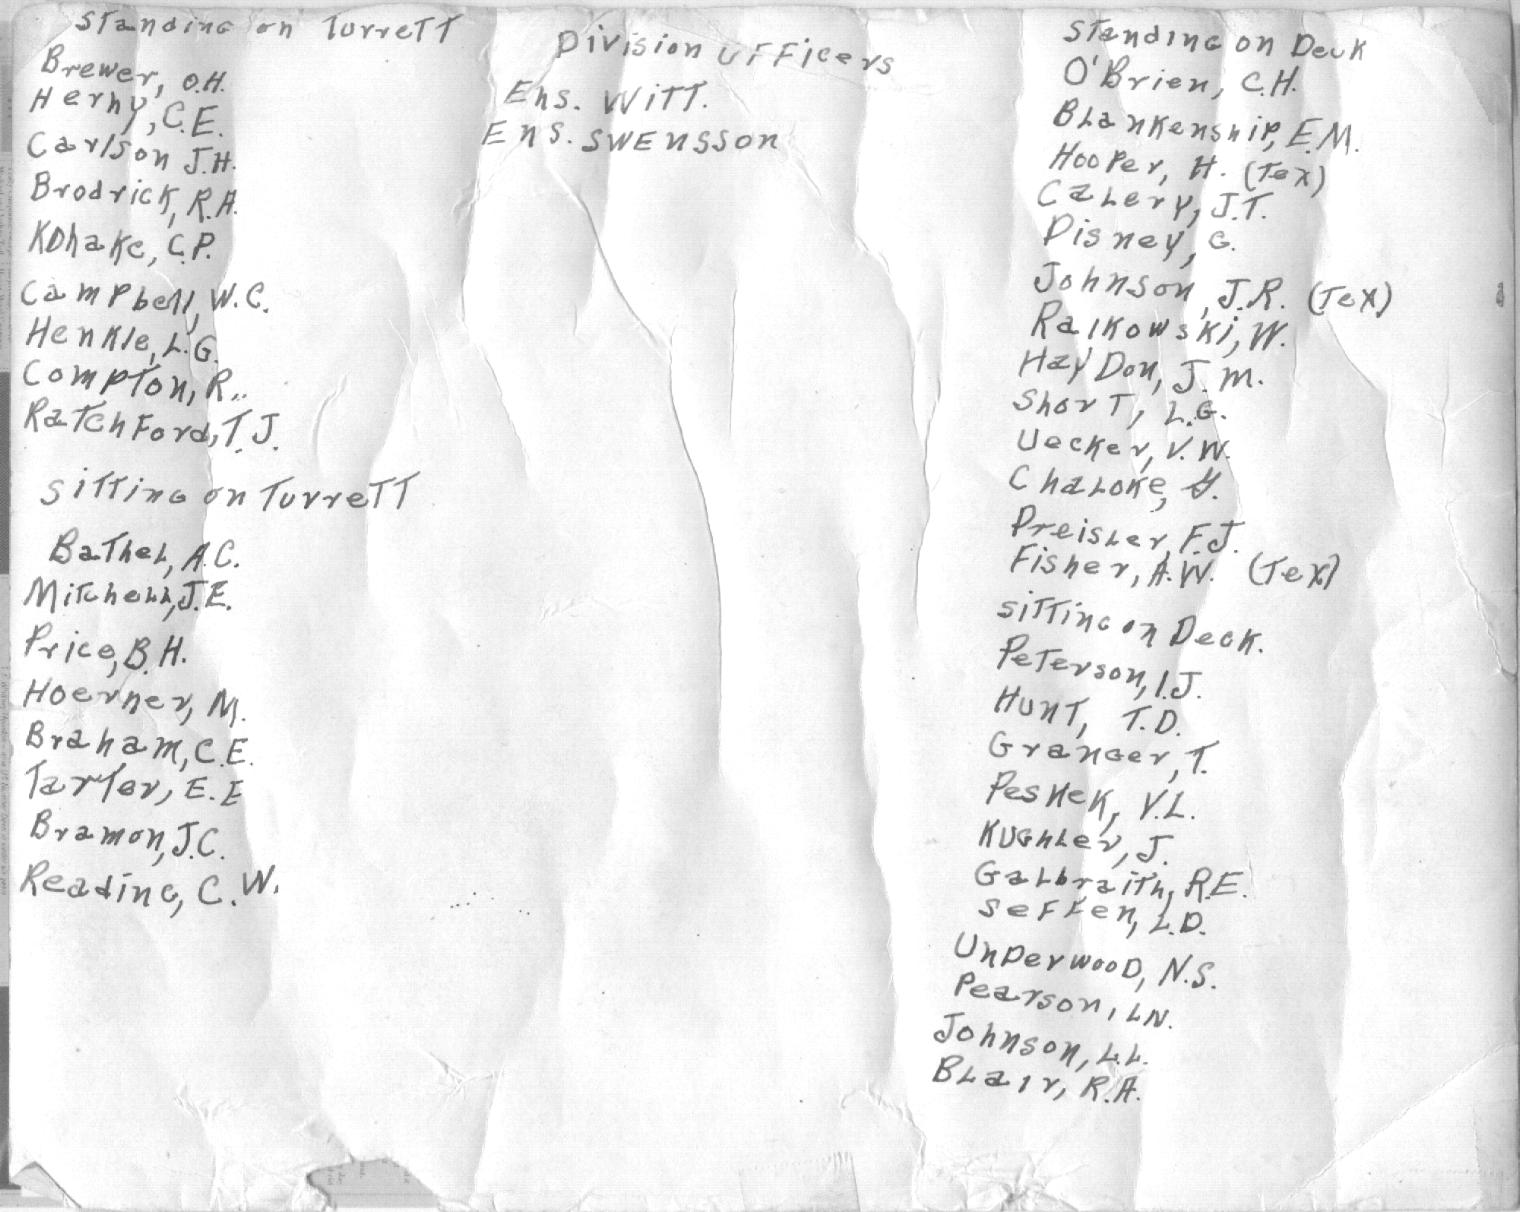 Standing on Turrett
Brewer, O.H.
Henny, C.E.
Carlson J.H.
Brodrick, R.A.
Kohake, C.P.
Campbell, W.C.
Henkle, L.G.
Compton, R..
Ratchford, T.J.
Sitting on Turrett
Bathel, A.C.
Mitchell, J.E.
Price, B.H.
Hoerner, M.
Braham, C.E.
Tarter, E.E
Bramon, J.C.
Reading, C.W.
Division Officers
Ens. Witt.
Ens. Swensson
Standing on Deck
O'Brien, C.H.
Blankenship, E.M.
Hooper, H. (Tex)
Calery, J.T.
Disney, G.
Johnson, J.R. (Tex)
Ralkowski, W.
HayDon, J.M.
Short, L.G.
Uecker, V.W.
Chaloke, G.
Preisler, F.J.
Fisher, A.W. (Tex)
Sitting on Deck.
Peterson, I.J.
Hunt, T.D.
Granger, T.
Peshek, V.L.
Kughler, J.
Galbraith, R.E.
Seffen, L.D.
UnDerwooD, N.S.
Pearson, L.N.
Johnson, L.L.
Blair, R.A.